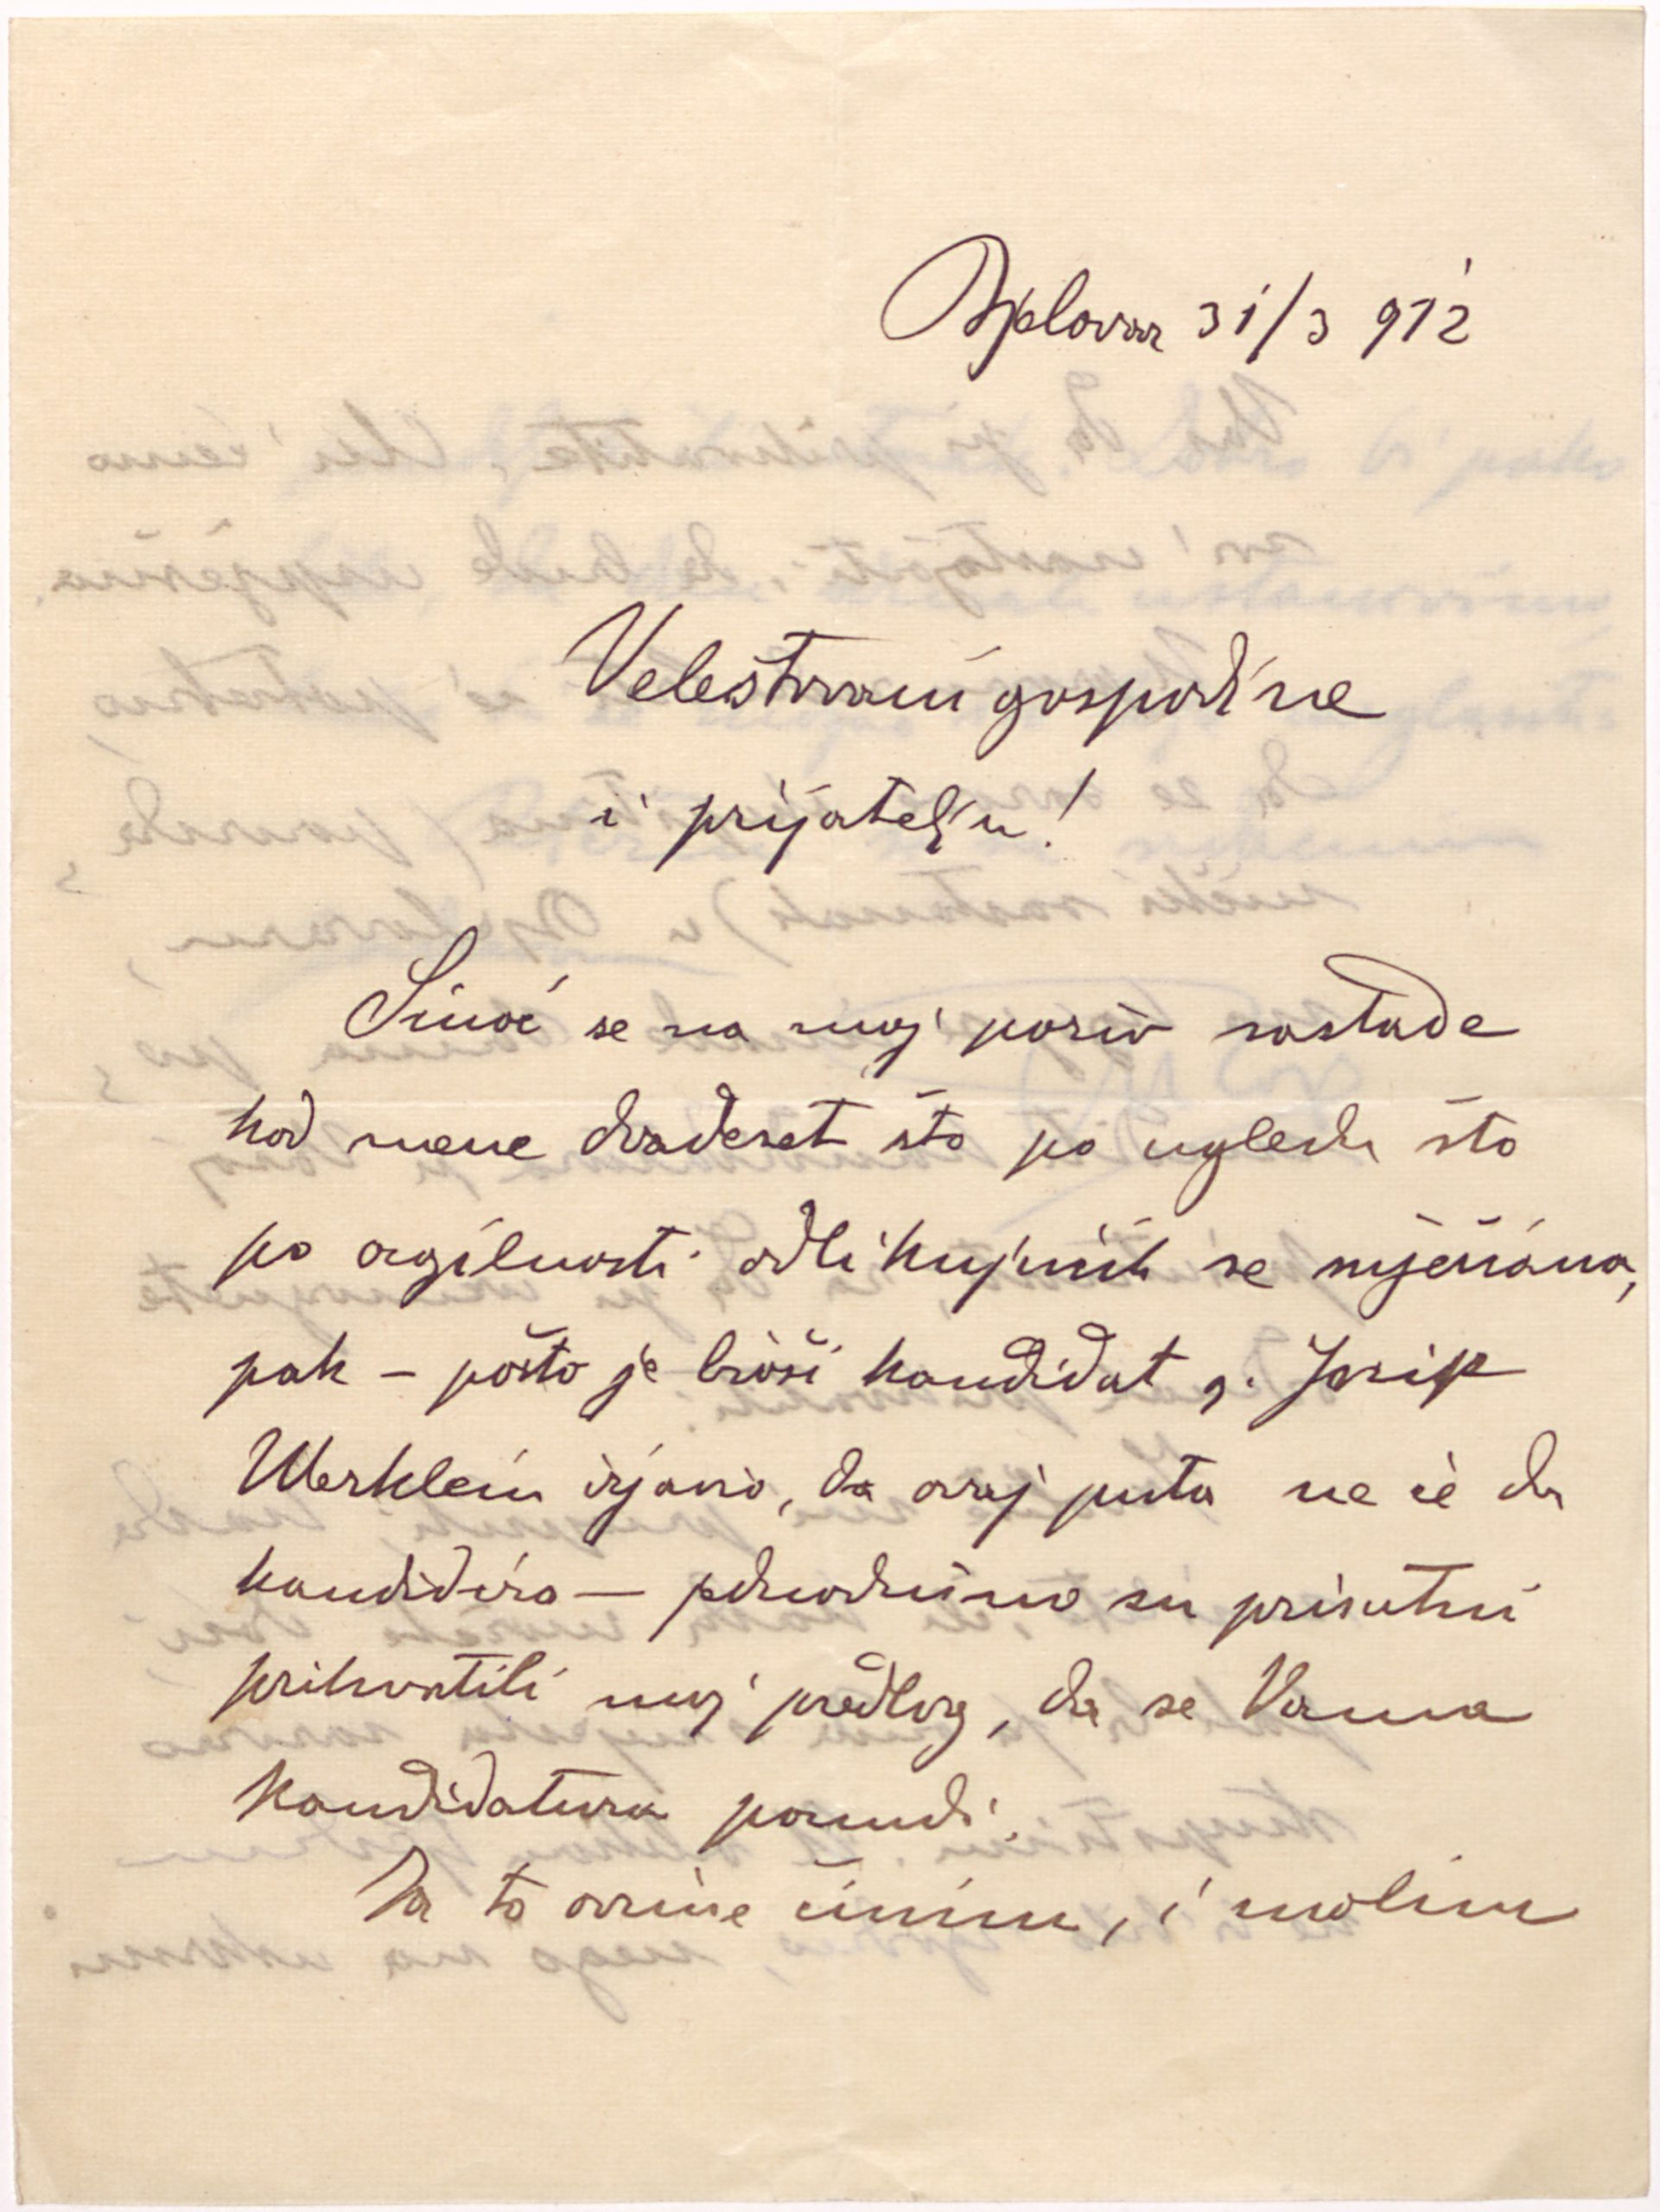 Bjelovar 31/3 912
Veleštovani gospodine
i prijatelju!
Sinoć se na moj poziv sastade
kod mene dvadeset što po ugledu što
po agilnosti odlikujućih se mješćana,
pak – pošto je bivši kandidat g. Josip
Werklein izjavio, da ovaj puta ne će da
kandidira – jednodušno su prisutni
prihvatili moj predlog, da se Vama
kandidatura ponudi.
Ja to ovime činim, i molim